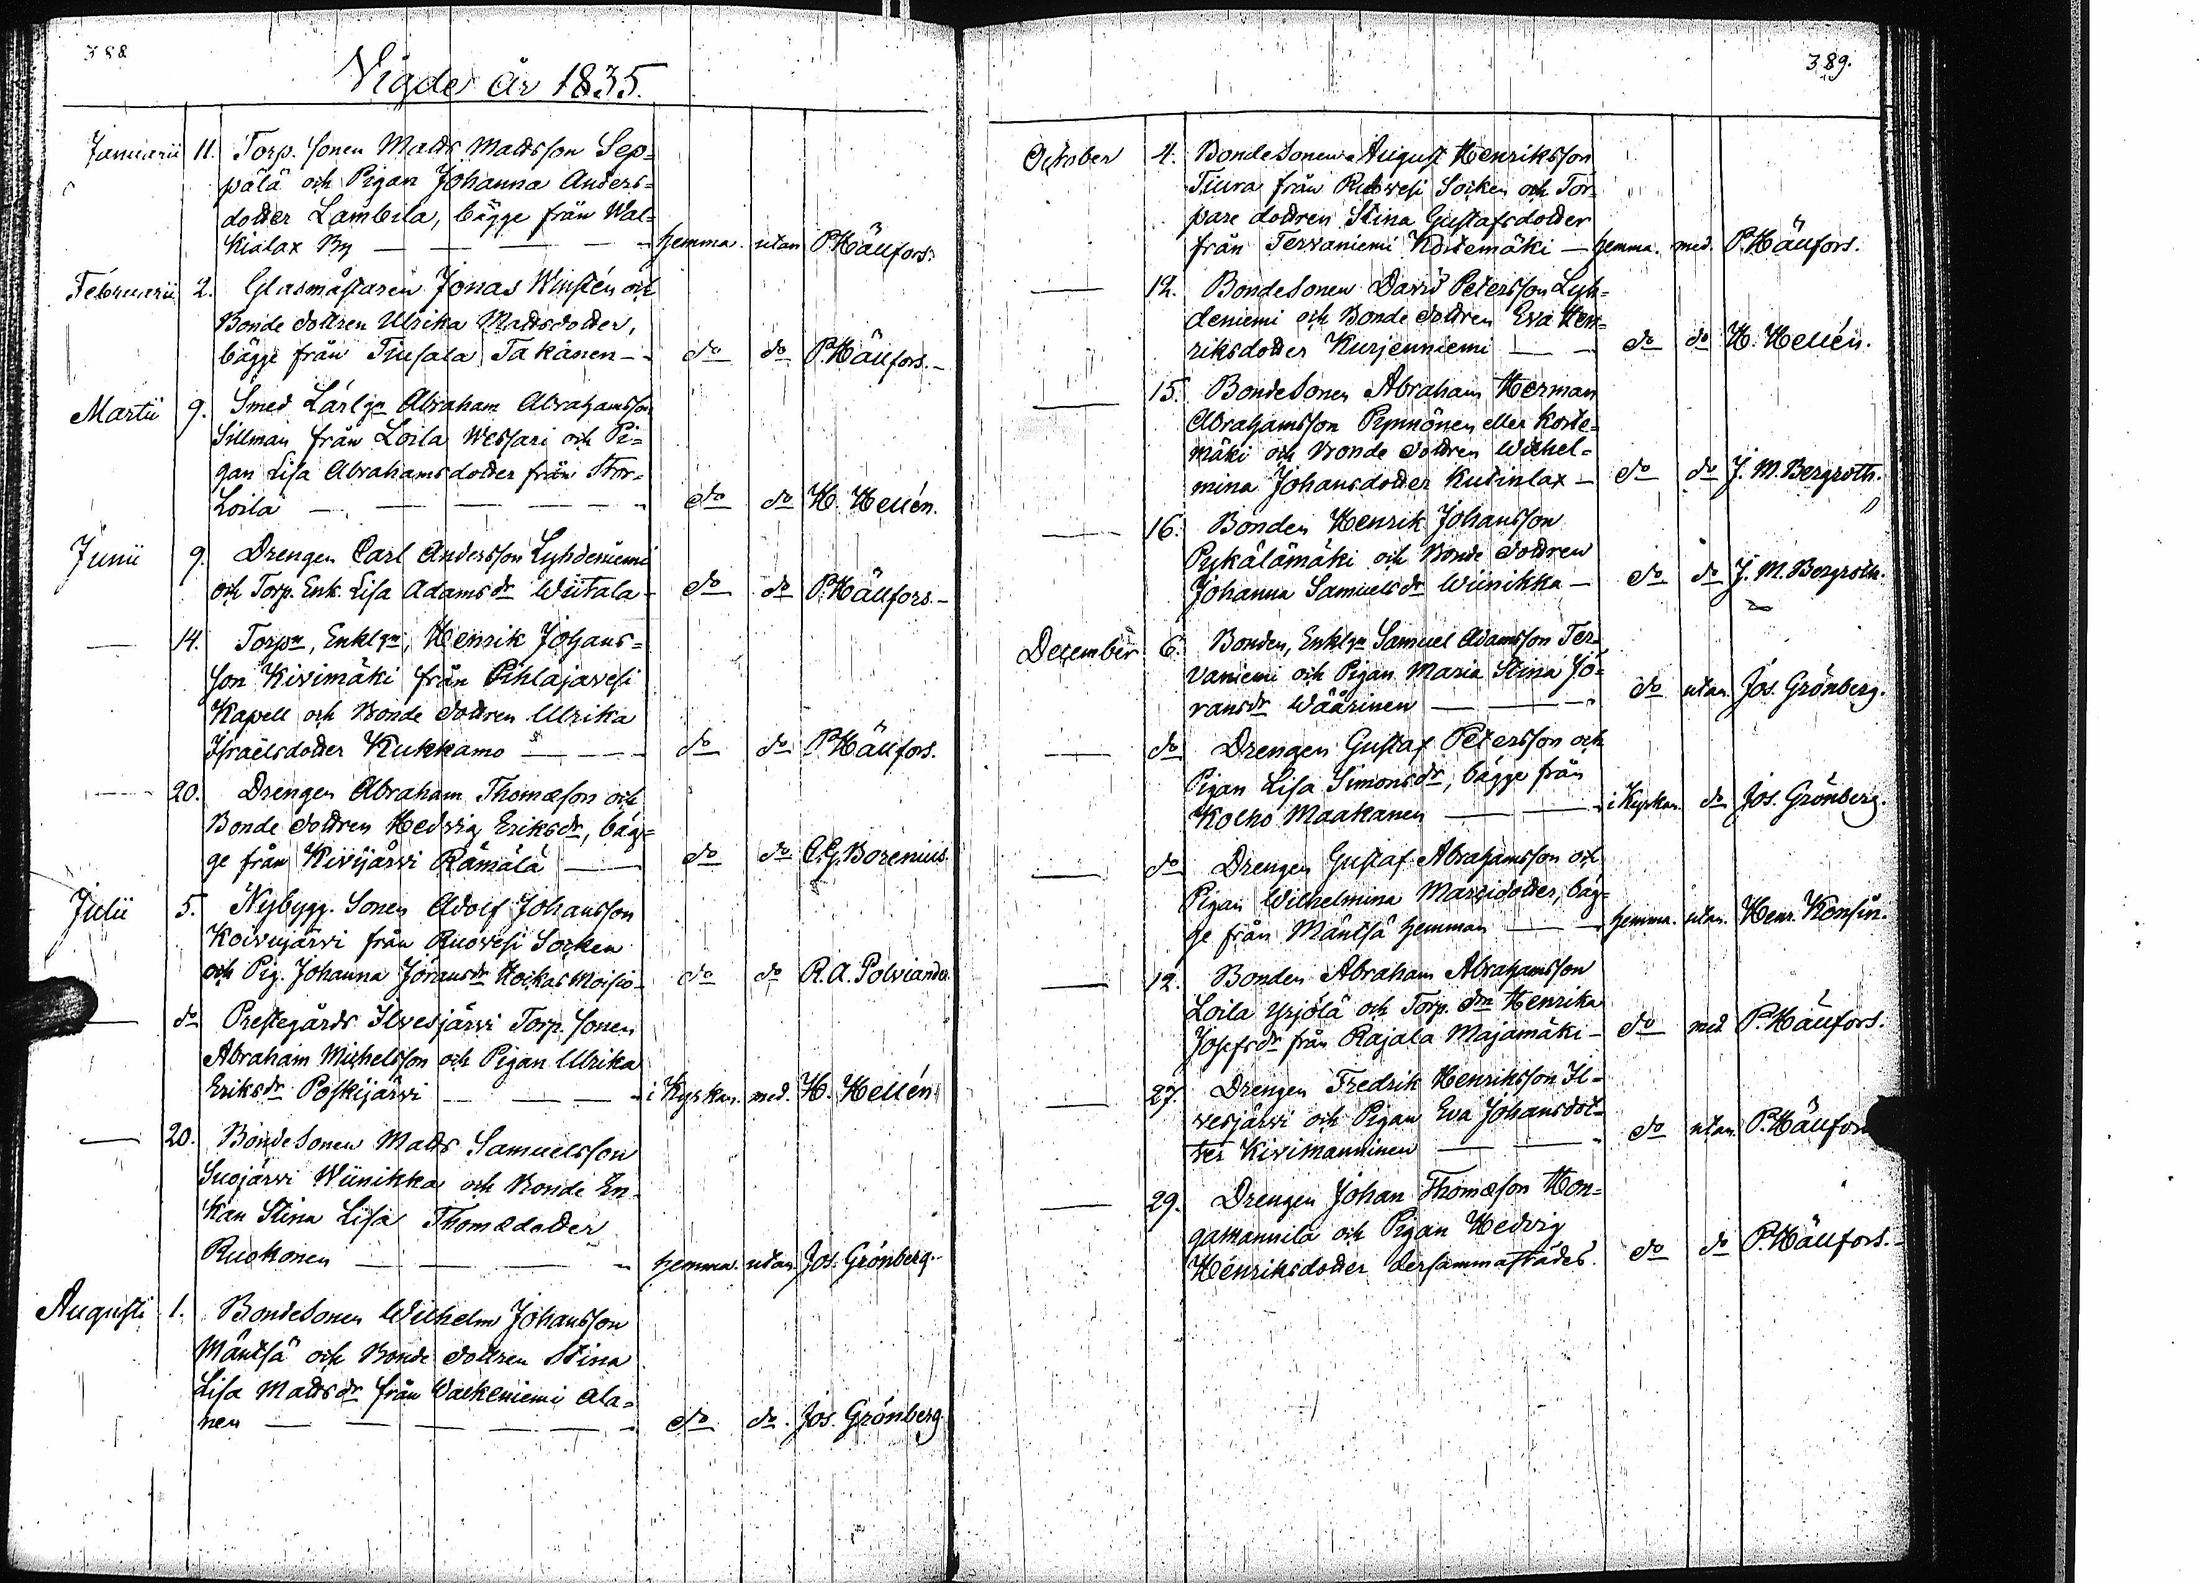 388
Vigde år 1835.
Januarii 11. Torp. sonen Matts Mattsson Sep=
pälä och Pigan Johanna Anders=
dotter Lambila, bägge från Wal=
kialax By — hemma. utan P. Hällfors.
Februarii 2. Glasmästaren Jonas Winstén och
Bonde dottren Ulrika Mattsdotter,
bägge från Tiusala Takanen — do do P. Hällfors.
Martii 9. Smed Lärlgn Abraham Abrahamsson
Sillman från Loila Wessari och Pi=
gan Lisa Abrahamsdotter från Stor=
Loila — do do H. Hellén.
Junii 9. Drengen Carl Andersson Lyhdeniemi
och Torp. Enk. Lisa Adamsdr Wiitala — do do P. Hällfors.
— 14. Torpn, Enklgn, Henrik Johans=
son Kivimäki från Pihlajavesi
Kapell och Bonde dottren Ulrika
Israelsdotter Kukkamo — do do P. Hällfors.
— 20. Drengen Abraham Thomæson och
Bonde dottren Hedvig Eriksdr, bäg=
ge från Kivijärvi Rämälä — do do C. G. Borenius
Julii 5. Nybygg. Sonen Adolf Johansson
Koivujärvi från Ruovesi Socken
och Pig. Johanna Jöransdr Hoikas Moisio — do do R. A. Polviander
— do Prestegårds Ilvesjärvi Torp. sonen
Abraham Michelsson och Pigan Ulrika
Eriksdr Poskijärvi — i Kyrkan. med. H. Hellén
— 20. Bondesonen Matts Samuelsson
Suojärvi Wiinikka och Bonde En=
kan Stina Lisa Thomædotter
Ruokonen — hemma. utan Jos. Grönberg.
Augusti 1. Bondesonen Wilhelm Johansson
Mäntsä och Bonde dottren Stina
Lisa Mattsdr från Walkeniemi Ala=
nen — do do. Jos. Grönberg.
389.
October 4. Bondesonen August Henriksson
Tiura från Ruovesi Socken och Tor=
pare dottren Stina Gustafsdotter
från Tervaniemi Kortemäki — hemma. med. P. Hällfors.
— 12. Bondesonen David Petersson Lyh=
deniemi och Bonde dottren Eva Hen=
riksdotter Kurjenniemi — do do H. Hellén.
— 15. Bondesonen Abraham Herman
Abrahamsson Pynnönen eller Korte=
mäki och Bonde dottren Wilhel=
mina Johansdotter Kutinlax — do do J. M. Bergroth.
— 16. Bonden Henrik Johansson
Pykälämäki och Bonde dottren
Johanna Samuelsdr Wiinikka — do do J. M. Bergroth.
December 6. Bonden, Enklgn Samuel Adamsson Ter=
vaniemi och Pigan Maria Stina Jö=
ransdr Wäärinen — do utan. Jos. Grönberg.
— do Drengen Gustaf Petersson och
Pigan Lisa Simonsdr, bägge från
Kolho Maakanen — i Kyrkan. do Jos. Grönberg.
— do Drengen Gustaf Abrahamsson och
Pigan Wilhelmina Marcidotter, bäg=
ge från Mäntsä hemman — hemma. utan. Henr. Konsin.
— 12. Bonden Abraham Abrahamsson
Loila Yrjölä och Torp. dtn Henrika
Josefsdr från Rajala Majamäki — do med P. Hällfors.
— 27. Drengen Fredrik Henriksson Il=
vesjärvi och Pigan Eva Johansdot=
ter Kivimanninen — do utan. P. Hällfors
— 29. Drengen Johan Thomæson Hon=
gamannila och Pigan Hedvig
Henriksdotter dersammastädes. do do P. Hällfors.